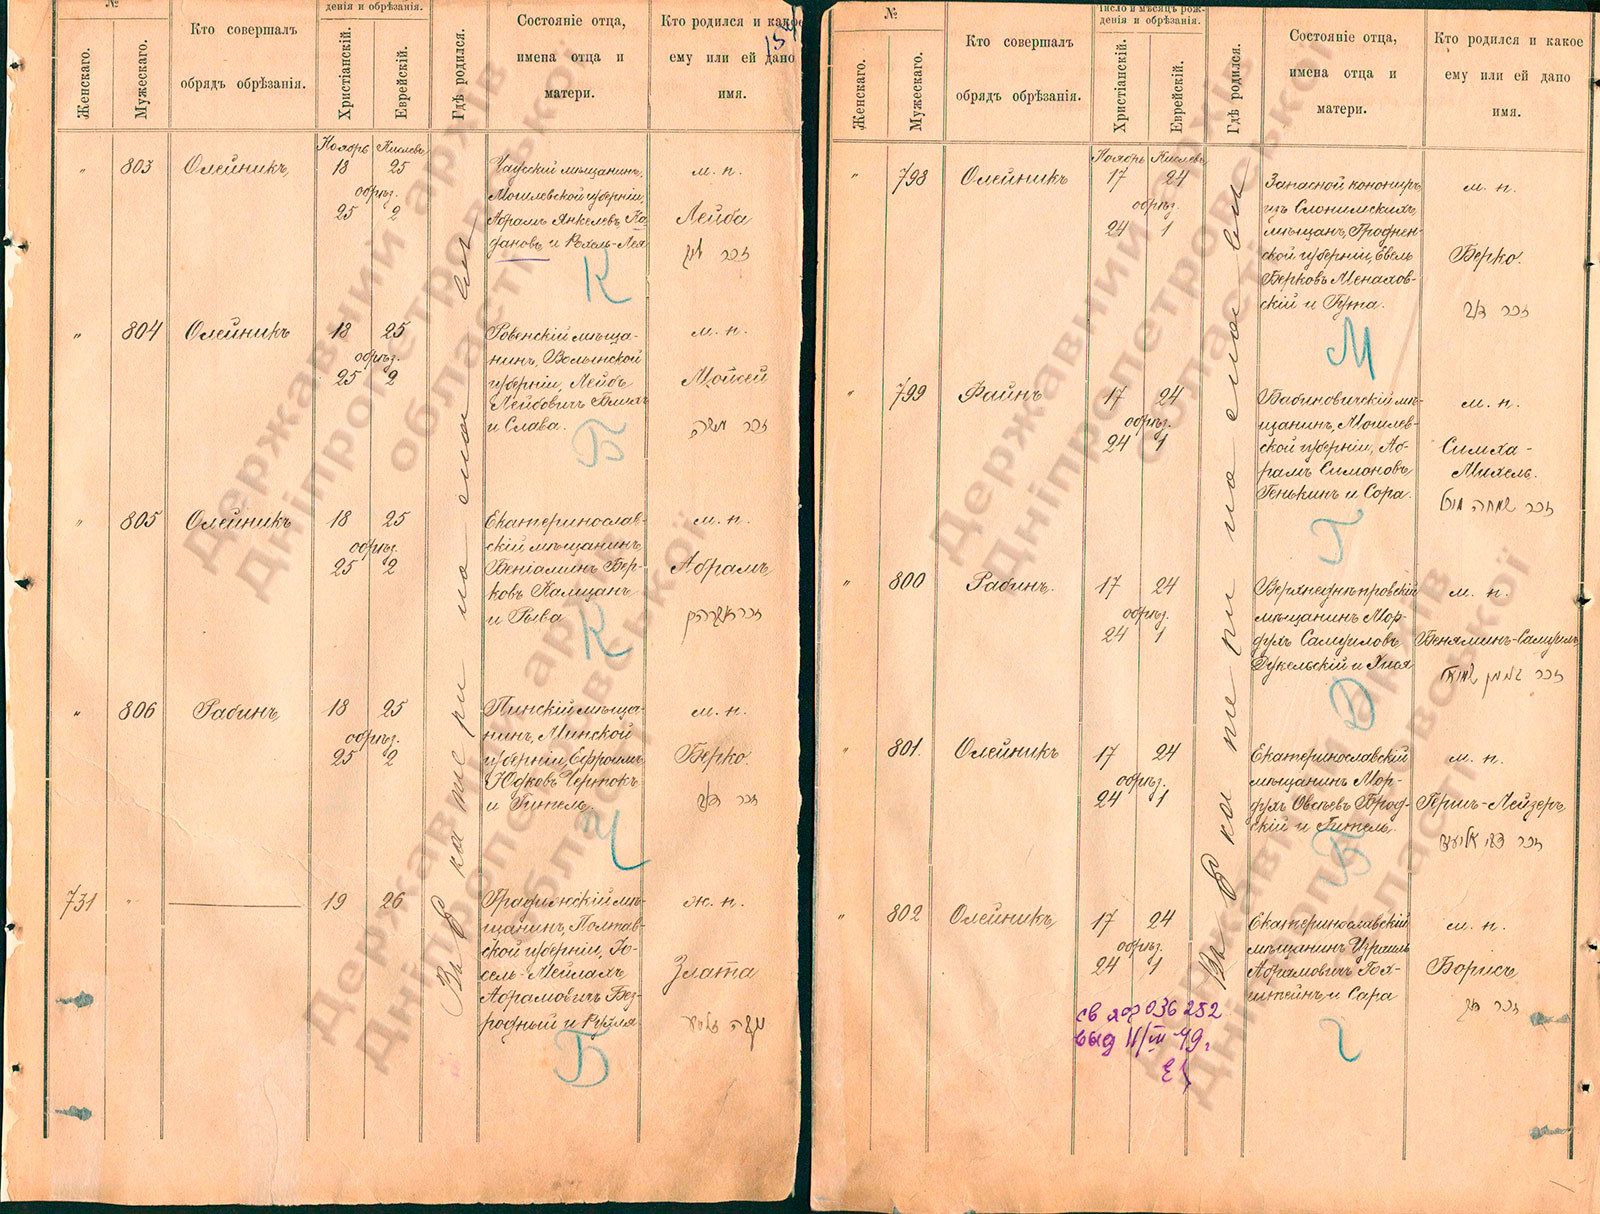 №
Женскаго.
Мужескаго.
Кто совершалъ
обрядъ обрѣзанія.
денія и обрѣзанія.
Христіанскій.
Еврейскій.
Гдѣ родился.
Состояніе отца,
имена отца и
матери.
Кто родился и какое
ему или ей дано
имя.
Ноябрь Кислевъ
" 803 Олейникъ 18 25
обрѣз.
25 2
Чаусскій мѣщанинъ,
Могилевской губерніи,
Абрамъ Янкелевъ Ка-
фановъ и Рохель-Лея
м. п.
Лейба
זכר
К
" 804 Олейникъ 18 25
обрѣз.
25 2
Ровенскій мѣща-
нинъ, Волынской
губерніи, Лейбъ
Лейбовичъ
и Слава.
м. п.
Мойсей
זכר משה
Б
" 805 Олейникъ 18 25
обрѣз.
25 2
Екатеринослав-
скій мѣщанинъ,
Веніаминъ Бер-
ковъ Камцанъ
и Рыва
м. п.
Абрамъ
זכר אברהם
К
" 806 Рабинъ 18 25
обрѣз.
25 2
Пинскій мѣща-
нинъ, Минской
губерніи, Ефроимъ
Юдковъ Чертокъ
и Гитель.
м. п.
Берко.
זכר
Ч
731 " 19 26
Градижскій мѣ-
щанинъ, Полтав-
ской губерніи, Іо-
сель-Мейлахъ
Абрамовичъ Без-
родный и Рухля
ж. п.
Злата
זלטע
Б
Въ Екатеринославѣ
№
Женскаго.
Мужескаго.
Кто совершалъ
обрядъ обрѣзанія.
Число и мѣсяцъ рож-
денія и обрѣзанія.
Христіанскій.
Еврейскій.
Гдѣ родился.
Состояніе отца,
имена отца и
матери.
Кто родился и какое
ему или ей дано
имя.
Ноябрь Кислевъ
" 798 Олейникъ 17 24
обрѣз.
24 1
Запасной канониръ
изъ Слонимскихъ
мѣщанъ, Гроднен-
ской губерніи, Евель
Берковъ Менахов-
скій и Гута.
м. п.
Берко.
זכר
М
" 799 Файнъ 17 24
обрѣз.
24 1
Бабиновичскій мѣ-
щанинъ, Могилев-
ской губерніи, Аб-
рамъ Симоновъ
Генькинъ и Сора.
м. п.
Симха-
Михель.
זכר שמחה
Г
" 800 Рабинъ. 17 24
обрѣз.
24 1
Верхнеднѣпровскій
мѣщанинъ Мор-
духъ Самуиловъ
Дукельскій и Хися
м. п.
Беняминъ-Самуилъ
זכר בנימן שמואל
Д
" 801. Олейникъ 17 24
обрѣз.
24 1
Екатеринославскій
мѣщанинъ Мор-
духъ Овсѣевъ Брод-
скій и Гитель.
м. п.
Гершъ-Лейзеръ,
זכר צבי אליעזר
Б
" 802 Олейникъ 17 24
обрѣз.
24 1
Екатеринославскій
мѣщанинъ Израиль
Абрамовичъ
штейнъ и Сара
м. п.
Борисъ
זכר
Г
Въ Екатеринославѣ
св яф 036252
выд 11/III 49 г
Державний архів
Дніпропетровської
області